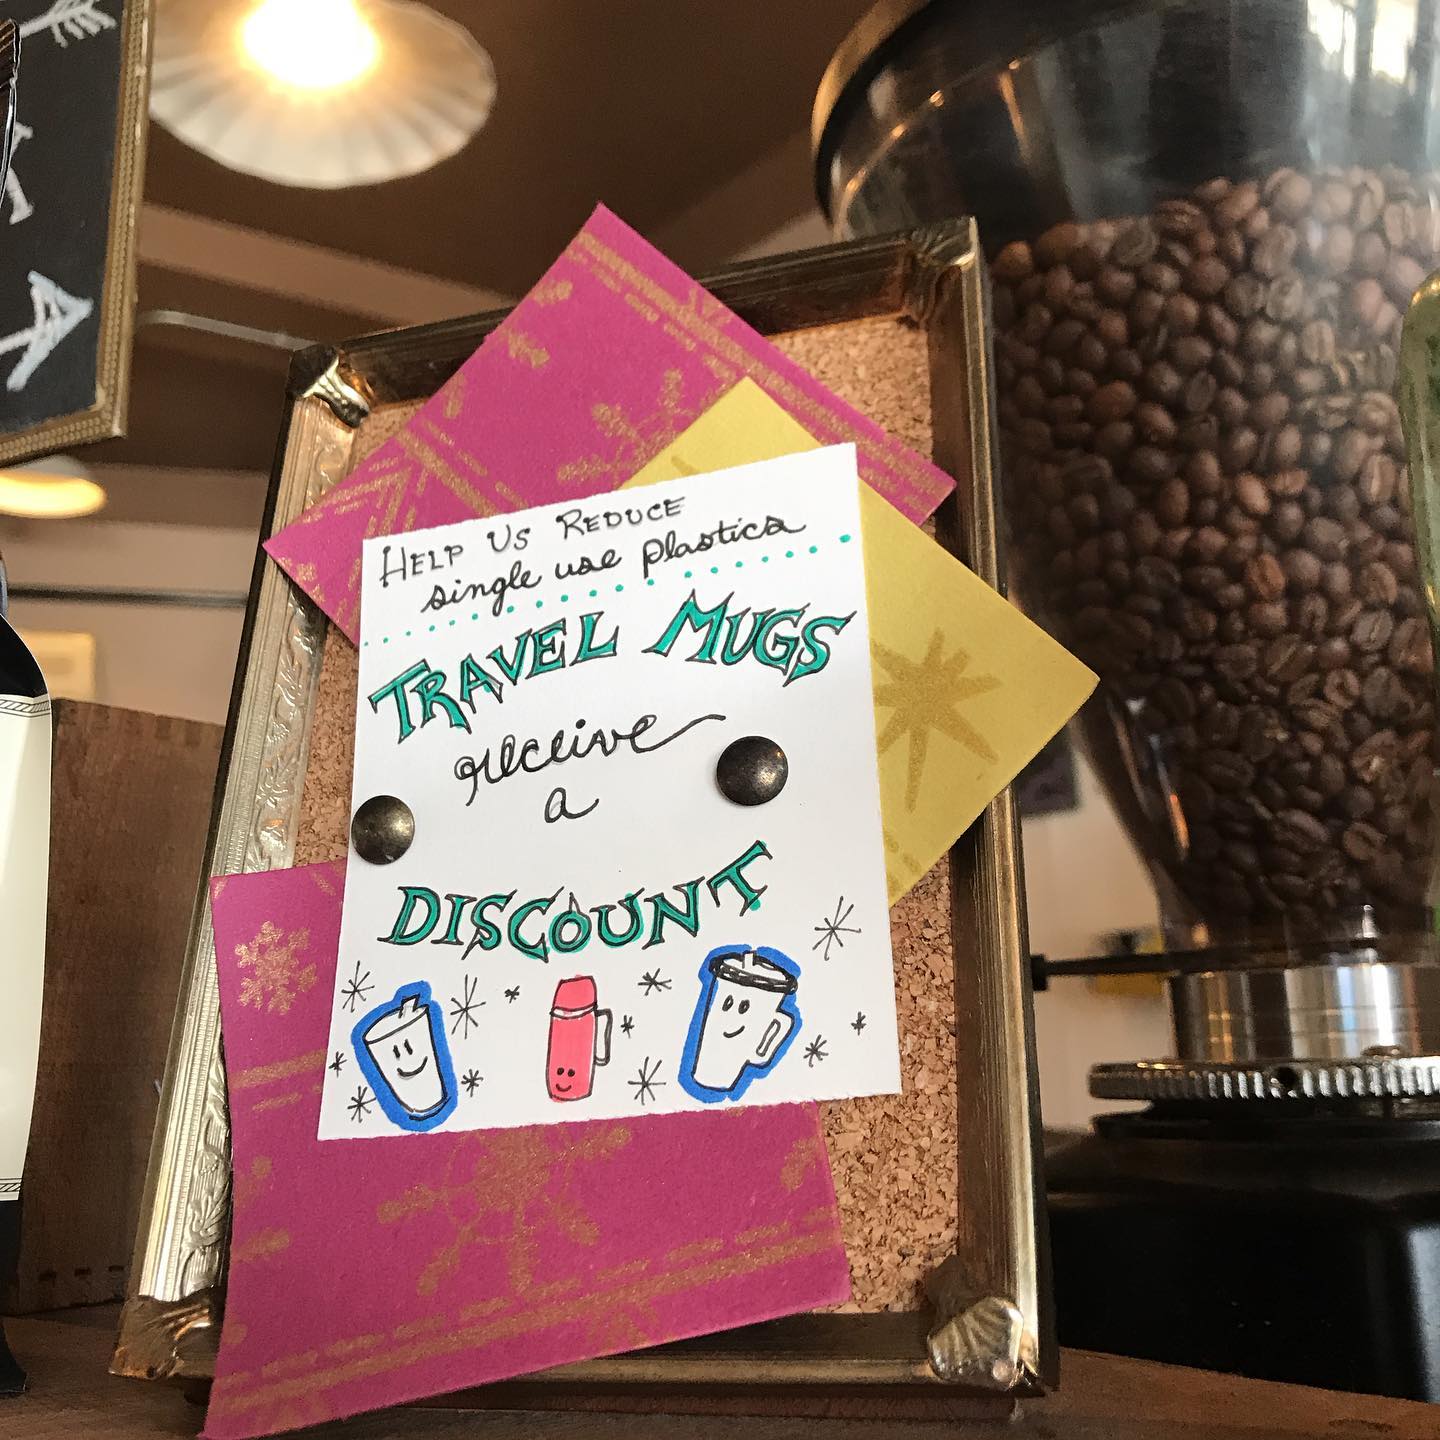 HELP US REDUCE
single use plastics
TRAVEL MUGS
receive
a
DISCOUNT